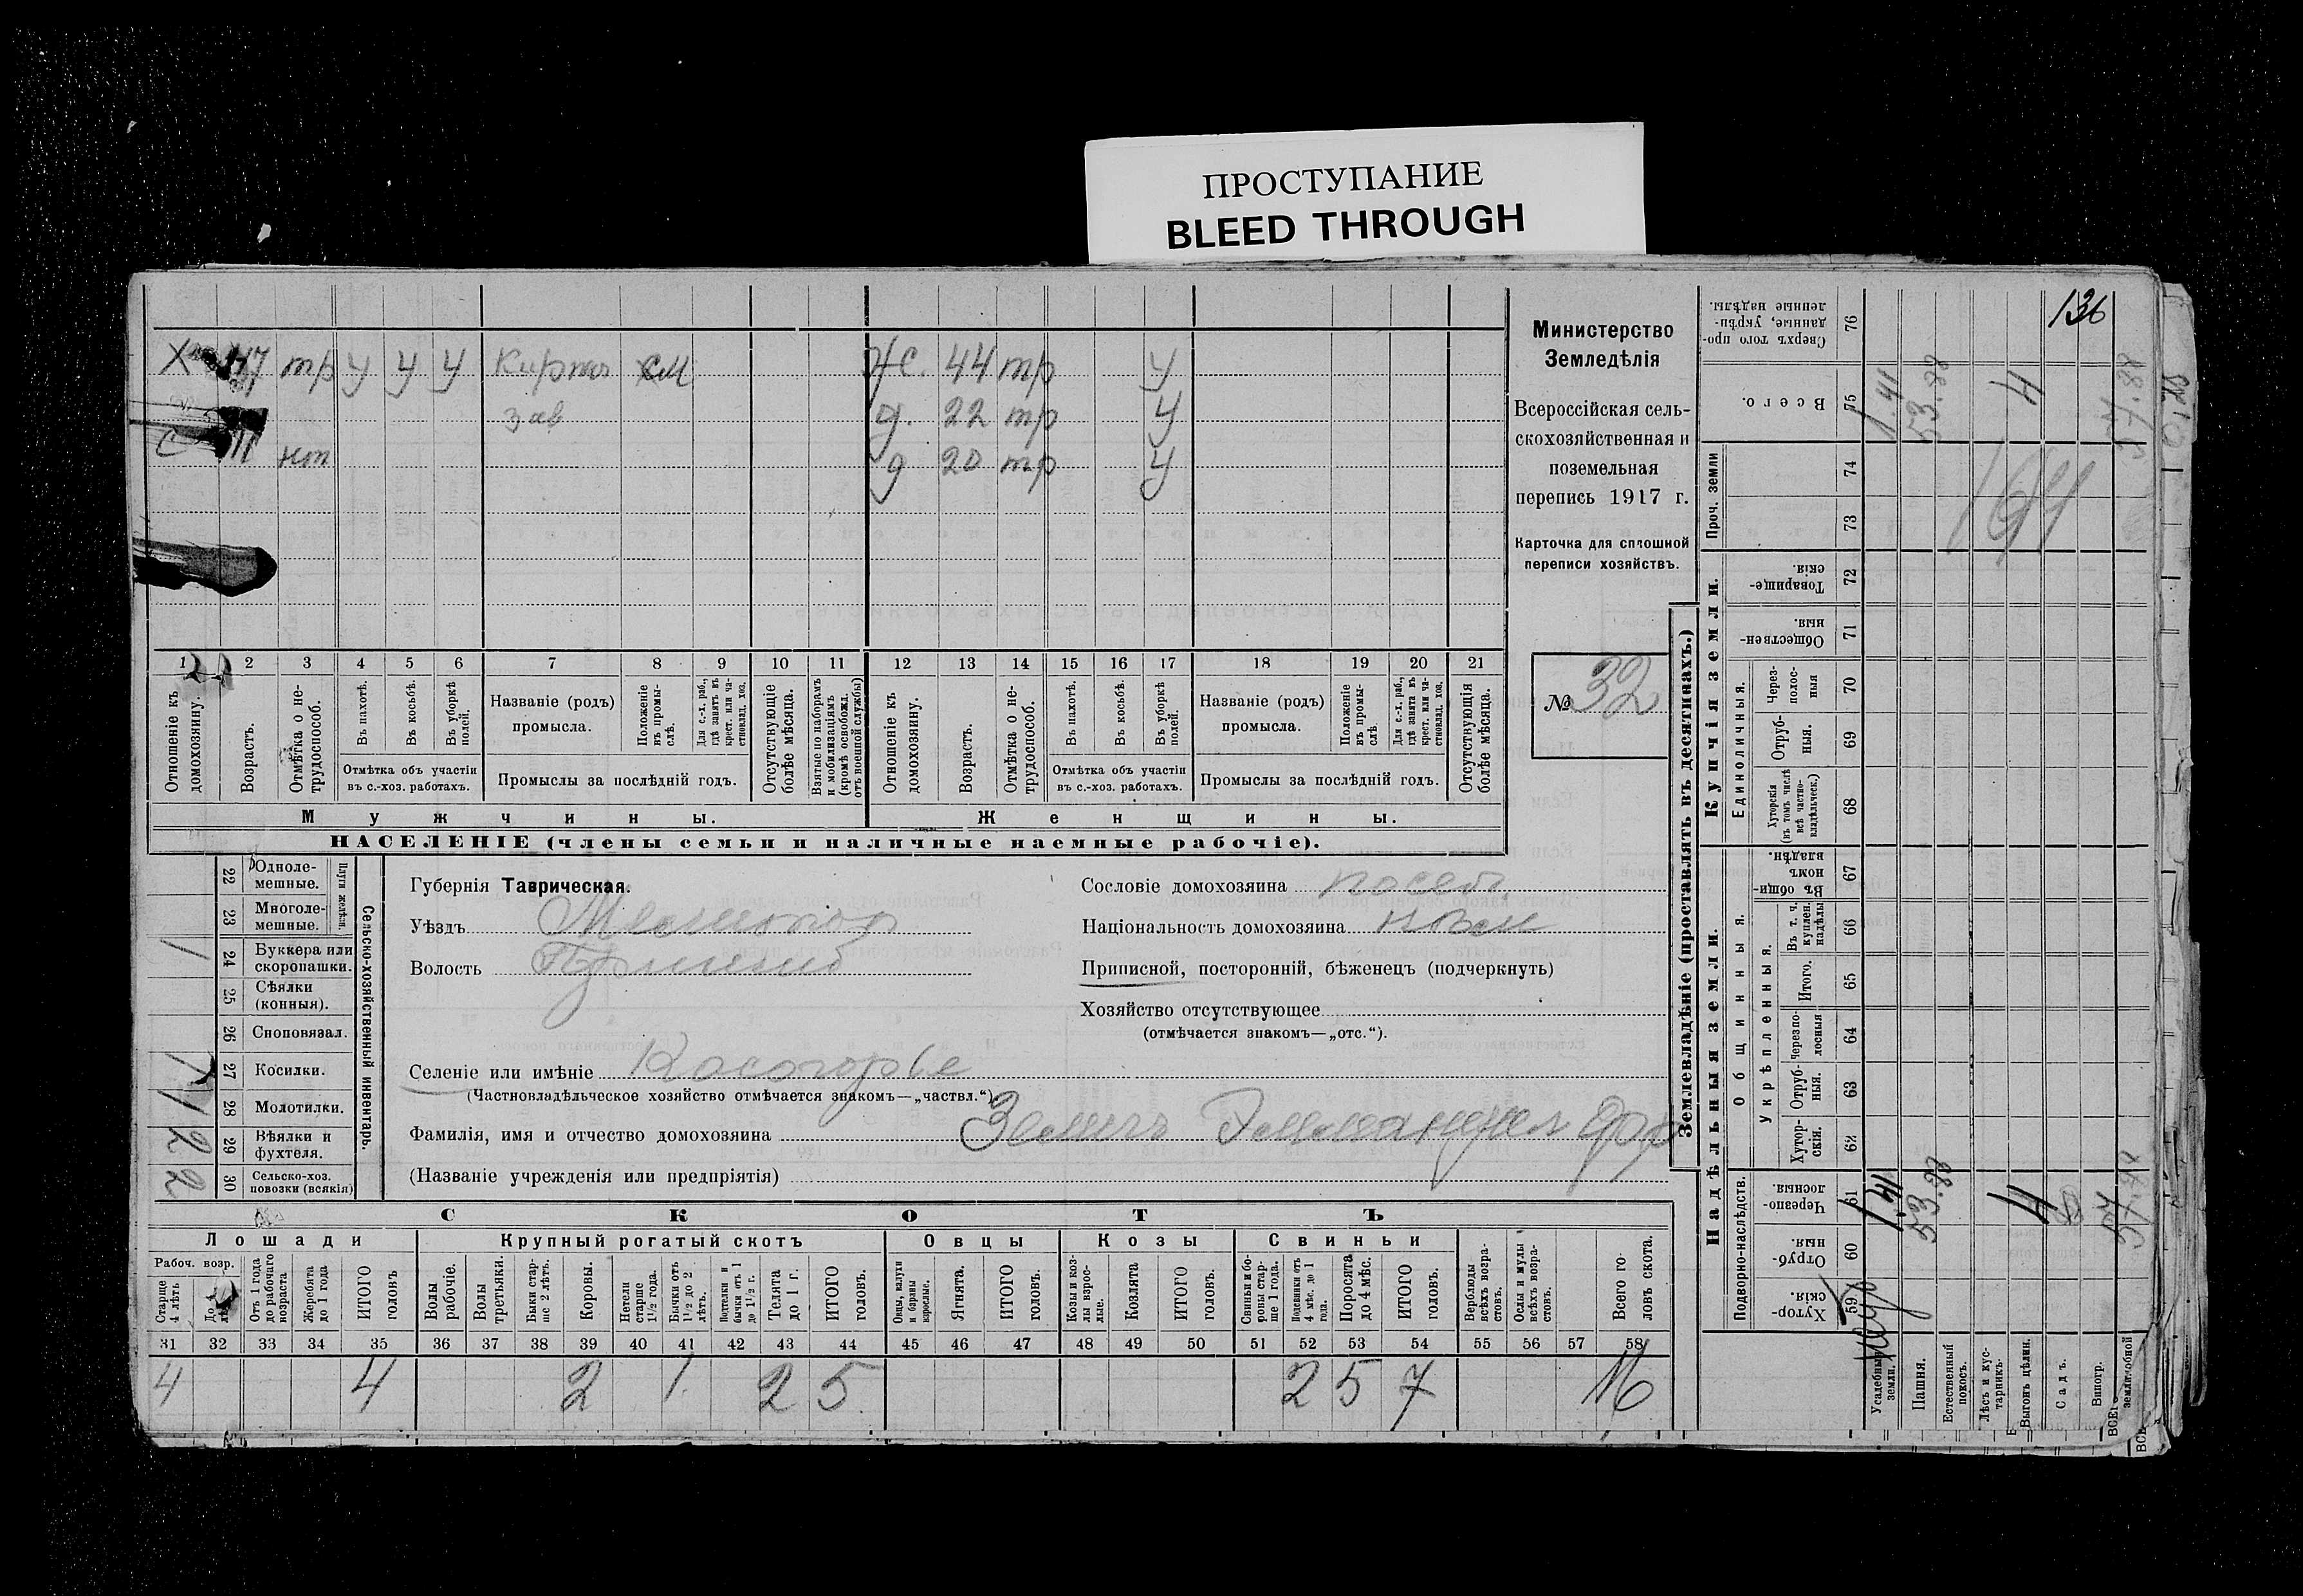 ПРОСТУПАНИЕ
BLEED THROUGH
136
47 тр у у у Кирпич Ж. 44 тр у
зав д. 22 тр у
С 11 нт д 20 тр у
1 2 3 4 5 6 7 8 9 10 11 12 13 14 15 16 17 18 19 20 21
Отношеніе къ домохозяину.
Возрастъ.
Отмѣтка о не-трудоспособ.
Въ пахотѣ.
Въ косьбѣ.
Въ уборкѣ полей.
Отмѣтка объ участіи
въ с.-хоз. работахъ.
Названіе (родъ)
промысла.
Положеніе въ промы-слѣ.
Для с.-х. раб., гдѣ занятъ въ крест. или ча-стновлад. хоз.
Промыслы за послѣдній годъ.
Отсутствующіе болѣе мѣсяца.
Взятые по наборамъ и мобилизаціямъ (кромѣ освобожд. отъ военной службы)
Отношеніе къ домохозяину.
Возрастъ.
Отмѣтка о не-трудоспособ.
Въ пахотѣ.
Въ косьбѣ.
Въ уборкѣ полей.
Отмѣтка объ участіи
въ с.-хоз. работахъ.
Названіе (родъ)
промысла.
Положеніе въ промы-слѣ.
Для с.-х. раб., гдѣ занята въ крест. или ча-стновлад. хоз.
Промыслы за послѣдній годъ.
Отсутствующія болѣе мѣсяца.
Мужчины. Женщины.
НАСЕЛЕНІЕ (члены семьи и наличные наемные рабочіе).
Министерство
Земледѣлія
Всероссійская сель-
скохозяйственная и
поземельная
перепись 1917 г.
Карточка для сплошной
переписи хозяйствъ.
№ 32
Сельско-хозяйственный инвентарь.
Плуги желѣзн.
22 Одноле-мешные.
23 Многоле-мешные.
1 24 Буккера или скоропашки.
25 Сѣялки (конныя).
26 Сноповязал.
1 27 Косилки.
1 28 Молотилки.
2 29 Вѣялки и фухтеля.
2 30 Сельско-хоз. повозки (всякія)
Губернія Таврическая.
Уѣздъ Мелитопол
Волость
Селеніе или имѣніе Косогорье
(Частновладѣльческое хозяйство отмѣчается знакомъ—„частвл.“)
Фамилія, имя и отчество домохозяина Эммануил
(Названіе учрежденія или предпріятія)
Сословіе домохозяина посел
Національность домохозяина нѣм
Приписной, посторонній, бѣженецъ (подчеркнуть)
Хозяйство отсутствующее
(отмѣчается знакомъ—„отс.“).
СКОТЪ
Лошади Крупный рогатый скотъ Овцы Козы Свиньи
Рабоч. возр.
Старше 4 лѣтъ
До 4 лѣтъ
Отъ 1 года до рабочаго возраста
Жеребята до 1 года
ИТОГО головъ
Волы рабочіе.
Волы третьяки.
Быки стар-ше 2 лѣтъ.
Коровы.
Нетели старше 1½ года.
Бычки отъ 1½ до 2 лѣтъ.
Подтелки и бычки отъ 1 до 1½ г.
Телята до 1 г.
ИТОГО головъ.
Овцы, валухи и бараны взрослые.
Ягнята.
ИТОГО головъ.
Козы и коз-лы взрос-лые.
Козлята
ИТОГО головъ.
Свиньи и бо-ровы стар-ше 1 года.
Подсвинки отъ 4 мѣс. до 1 года.
Поросята до 4 мѣс.
ИТОГО головъ.
Верблюды всѣхъ возра-стовъ.
Ослы и мулы всѣхъ возра-стовъ.
Всего го-ловъ скота.
31 32 33 34 35 36 37 38 39 40 41 42 43 44 45 46 47 48 49 50 51 52 53 54 55 56 57 58
4 4 2 1 2 5 2 5 7 16
Землевладѣніе (проставлять въ десятинахъ.)
Купчія земли.
Надѣльныя земли.
Сверхъ того про-данные, укрѣп-ленные надѣлы. 76
Всего. 75 1.41 53.88 4 57.88
Проч. земли 74 73
Товарище-скія. 72
Обществен-ныя. 71
Единоличныя.
Через-полос-ныя 70
Отруб-ныя. 69
Хуторскія (въ томъ числѣ всѣ частно-владѣльческ.) 68
Общинныя.
Въ общин-номъ владѣн. 67
Укрѣпленныя.
Въ т. ч. куплен. надѣлы 66
Итого. 65
Черезпо-лосныя 64
Отруб-ныя. 63
Хутор-скія. 62
Подворно-наслѣдств.
Черезпо-лосныя. 61 1.41 53.88 4
Отруб-ныя. 60
Хутор-скія. 59
Усадебныя земли.
Пашня.
Естественный покосъ.
Лѣсъ и кус-тарникъ.
Выгонъ цѣлин.
Садъ.
Виногр.